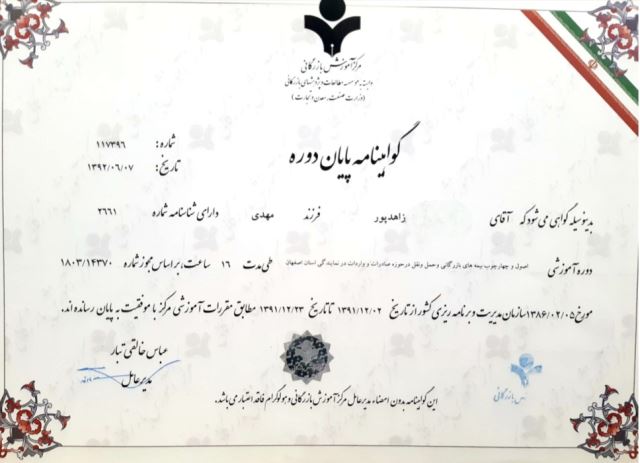 مرکز آموزش بازرگانی
وابسته به موسسه مطالعات و پژوهشهای بازرگانی
(وزارت صنعت، معدن و تجارت)
شماره: ۱۱۷۳۹۶
تاریخ: ۱۳۹۲/۰۶/۰۷
گواهینامه پایان دوره
بدینوسیله گواهی می شود که آقای زاهدپور فرزند مهدی دارای شناسنامه شماره ۲۶۶۱
دوره آموزشی اصول و چهارچوب بیمه های بازرگانی وحمل ونقل درحوزه صادرات و واردات در نمایندگی استان اصفهان طی مدت ۱۶ ساعت، بر اساس مجوز شماره ۱۸۰۳/۱۴۳۷۰
مورخ ۱۳۸۶/۰۲/۰۵ سازمان مدیریت و برنامه ریزی کشور از تاریخ ۱۳۹۱/۱۲/۰۲ تا تاریخ ۱۳۹۱/۱۲/۲۳ مطابق مقررات آموزشی مرکز با موفقیت به پایان رسانده اند.
عباس خالقی تبار
مدیرعامل
این گواهینامه بدون امضاء مدیرعامل مرکز آموزش بازرگانی و هولوگرام فاقد اعتبار می باشد.